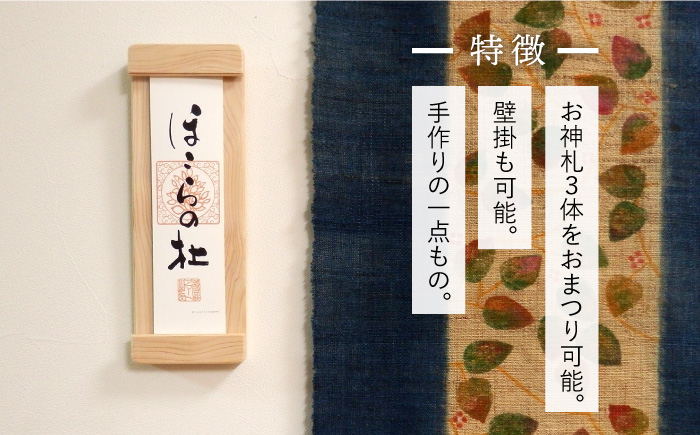 特徴
お神札3体をおまつり可能。
壁掛も可能。
手作りの一点もの。
ほこらの杜